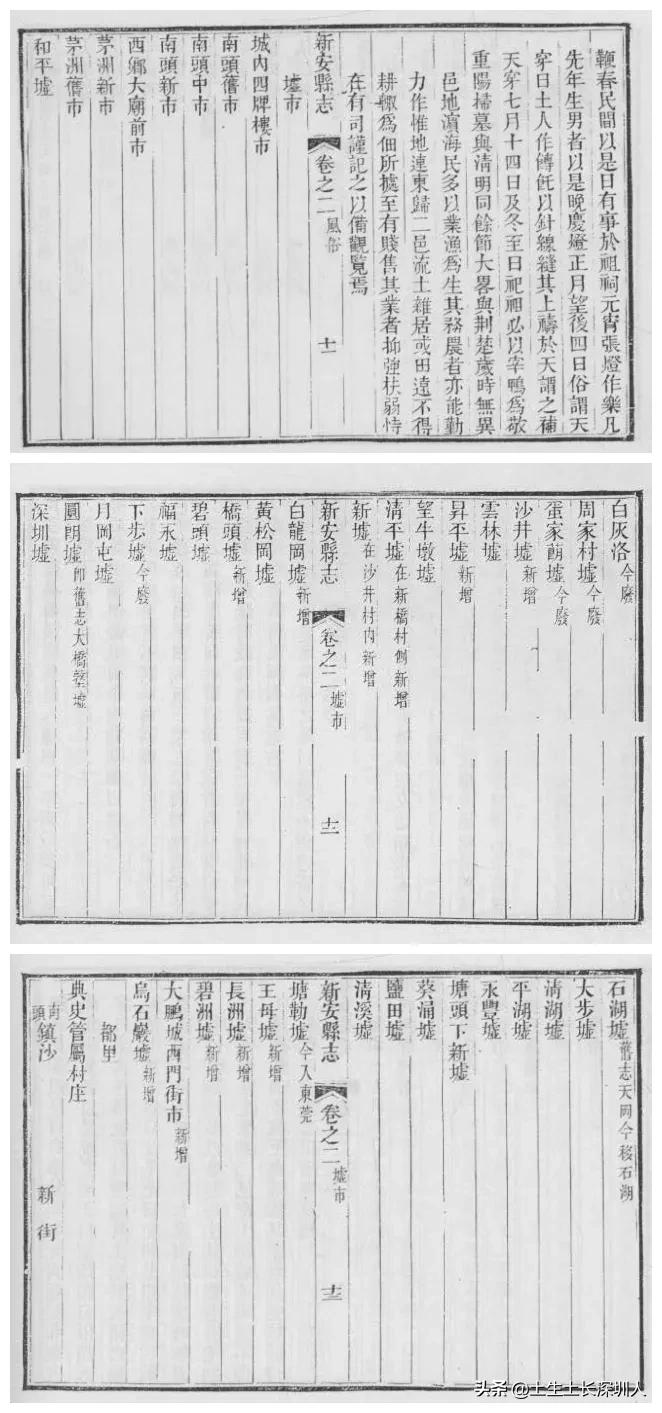 鞭春民間以是日有事於祖祠元宵張燈作樂凡
先年生男者以是晚慶燈正月望後四日俗謂天
穿日土人作餺飥以針線縫其上禱於天謂之補
天穿七月十四日及冬至日祀祖必以宰鴨爲敬
重陽掃墓與清明同餘節大畧與荆楚歲時無異
邑地濵海民多以業漁爲生其務農者亦能勤
力作惟地連東歸二邑流土雜居或田遠不得
耕輙爲佃所據至有賤售其業者抑強扶弱恃
在有司謹記之以備觀覧焉
墟市
新安縣志 卷之二 風俗 十一
城內四牌樓市
南頭舊市
南頭中市
南頭新市
西鄉大廟前市
茅洲新市
茅洲舊市
和平墟
白灰洛 今廢
周家村墟 今廢
蛋家蓢墟 今廢
沙井墟 新增
雲林墟
昇平墟 新增
望牛墩墟
清平墟 在新橋村側新增
新墟 在沙井村內新增
新安縣志 卷之二 墟市 十二
白龍岡墟 新增
黃松岡墟
橋頭墟 新增
碧頭墟
福永墟
下步墟 今廢
月岡屯墟
圓朗墟 即舊志大橋墪墟
深圳墟
石湖墟 舊志天岡今移石湖
大步墟
清湖墟
平湖墟
永豐墟
塘頭下新墟
葵涌墟
鹽田墟
清溪墟
新安縣志 卷之二 墟市 十三
塘勒墟 今入東莞
王母墟 新增
長洲墟 新增
碧洲墟 新增
大鵬城西門街市 新增
烏石巖墟 新增
都里
典史管屬村庄
南頭鎮沙 新街
头条 @土生土长深圳人